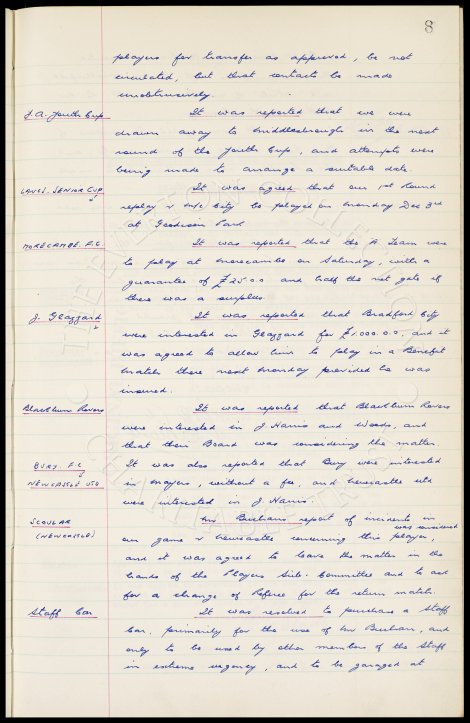 8
players for transfer as approved, be not
circulated, but that contacts be made
unobtrusively.
F.A. Youth Cup It was reported that we were
drawn away to Middlesbrough in the next
round of the Youth Cup, and attempts were
being made to arrange a suitable date.
LANCS. SENIOR CUP It was agreed that our 1st Round
replay v M/c City be played on Monday Dec 3rd
at Goodison Park
MORECAMBE. F.C. It was reported that the A Team were
to play at Morecambe on Saturday, with a
guarantee of £25.0.0 and half the net gate if
there was a surplus.
J. Glazzard It was reported that Bradford City
were interested in Glazzard for £1,000.0.0, and it
was agreed to allow him to play in a Benefit
Match there next Monday provided he was
insured.
Blackburn Rovers It was reported that Blackburn Rovers
were interested in J Harris and Woods, and
that their Board was considering the matter.
BURY. F.C. It was also reported that Bury were interested
NEWCASTLE UTD in Mayers, without a fee, and Newcastle Utd
were interested in J Harris.
SCOULAR Mr Buchan's report of incidents in
(NEWCASTLE) our game v Newcastle concerning this player, was considered
and it was agreed to leave the matter in the
hands of the Players Sub. Committee and to ask
for a change of Referee for the return match.
Staff Car It was resolved to purchase a Staff
Car, primarily for the use of Mr Buchan, and
only to be used by other members of the Staff
in extreme urgency, and to be garaged at